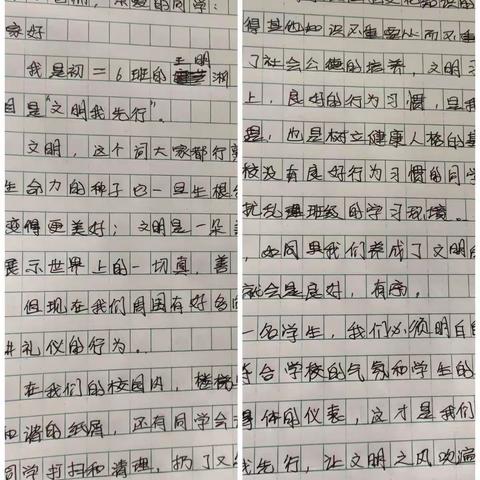 亲爱的同学:
家好
我是初二6班的王明
目是“文明我先行”。
文明,这个词大家都行
生命力的种子它一旦生根
变得更美好;文明是一朵
展示世界上的一切真,善
但现在我们周围有好多
礼仪的行为。
在我们的校园内,楼梯
和谐的纸屑,还有同学会
同学打扫和清理,扔了又
得其他知识不重要从而不重
了社会公德的培养,文明
上,良好的行为习惯,是我
是,也是树立健康人格的基
校没有良好行为习惯的同学
扰乱班级的学习环境。
,如同果我们养成了文明
就会是良好,有序。
一名学生,我们必须明白
符合学校的气氛和学生的
得体的仪表,这才是我们
我先行,让文明之风吹遍